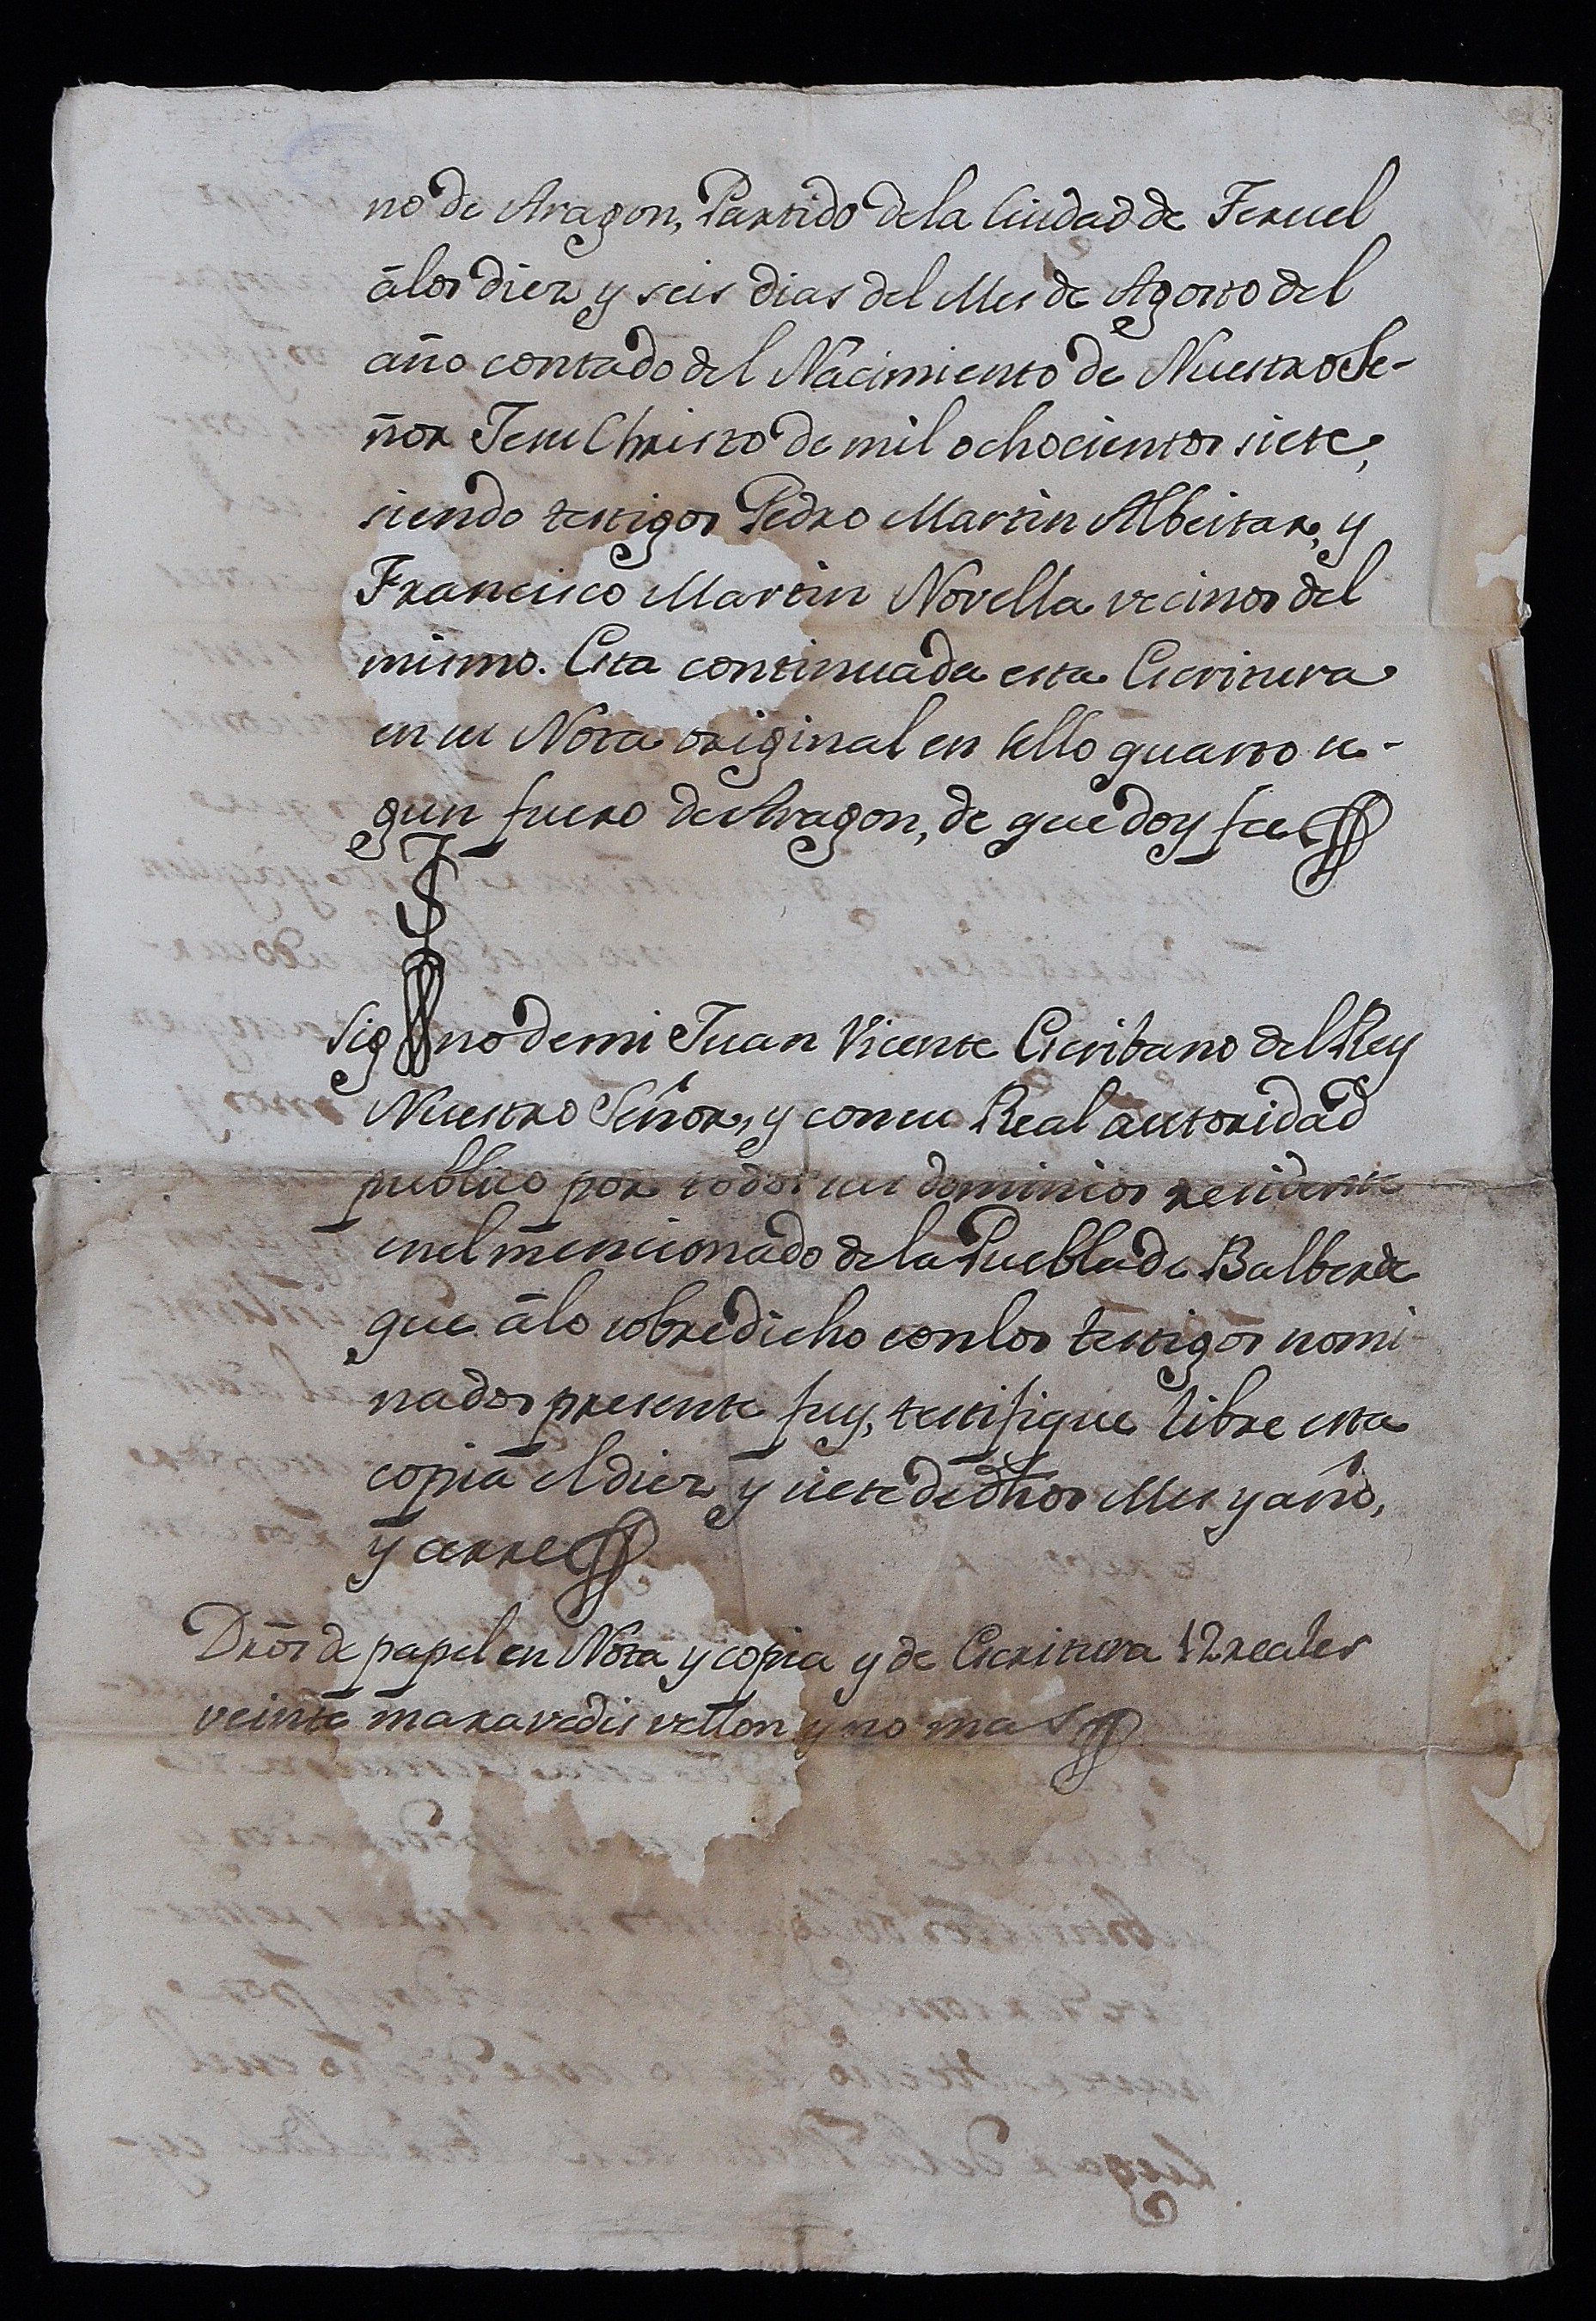 no de Aragon, Partido dela Ciudad de Teruel
â los diez y seis dias del Mes de Agosto del
año contado del Nacimiento de Nuestro Se-
ñor Jesu Christo de mil ochocientos siete,
siendo testigos Pedro Martin Albeitar, y
Francisco Martin Novella vecinos del
mismo. Esta continuada esta Escritura
en su Nota original en sello quarto se-
gun fuero de Aragon, de que doy fee
Sig no de mi Juan Vicente Escribano del Rey
Nuestro Señor, y con su Real autoridad
publico por todos sus dominios residente
enel mencionado dela Puebla de Balberde
que â lo sobredicho con los testigos nomi-
nados presente fuy, testifique libre esta
copia el dia diez y siete de dhos Mes y año,
y cerre
Dros de papel en Nota y copia y de Escritura 12 reales
veinte maravedis vellon y no mas